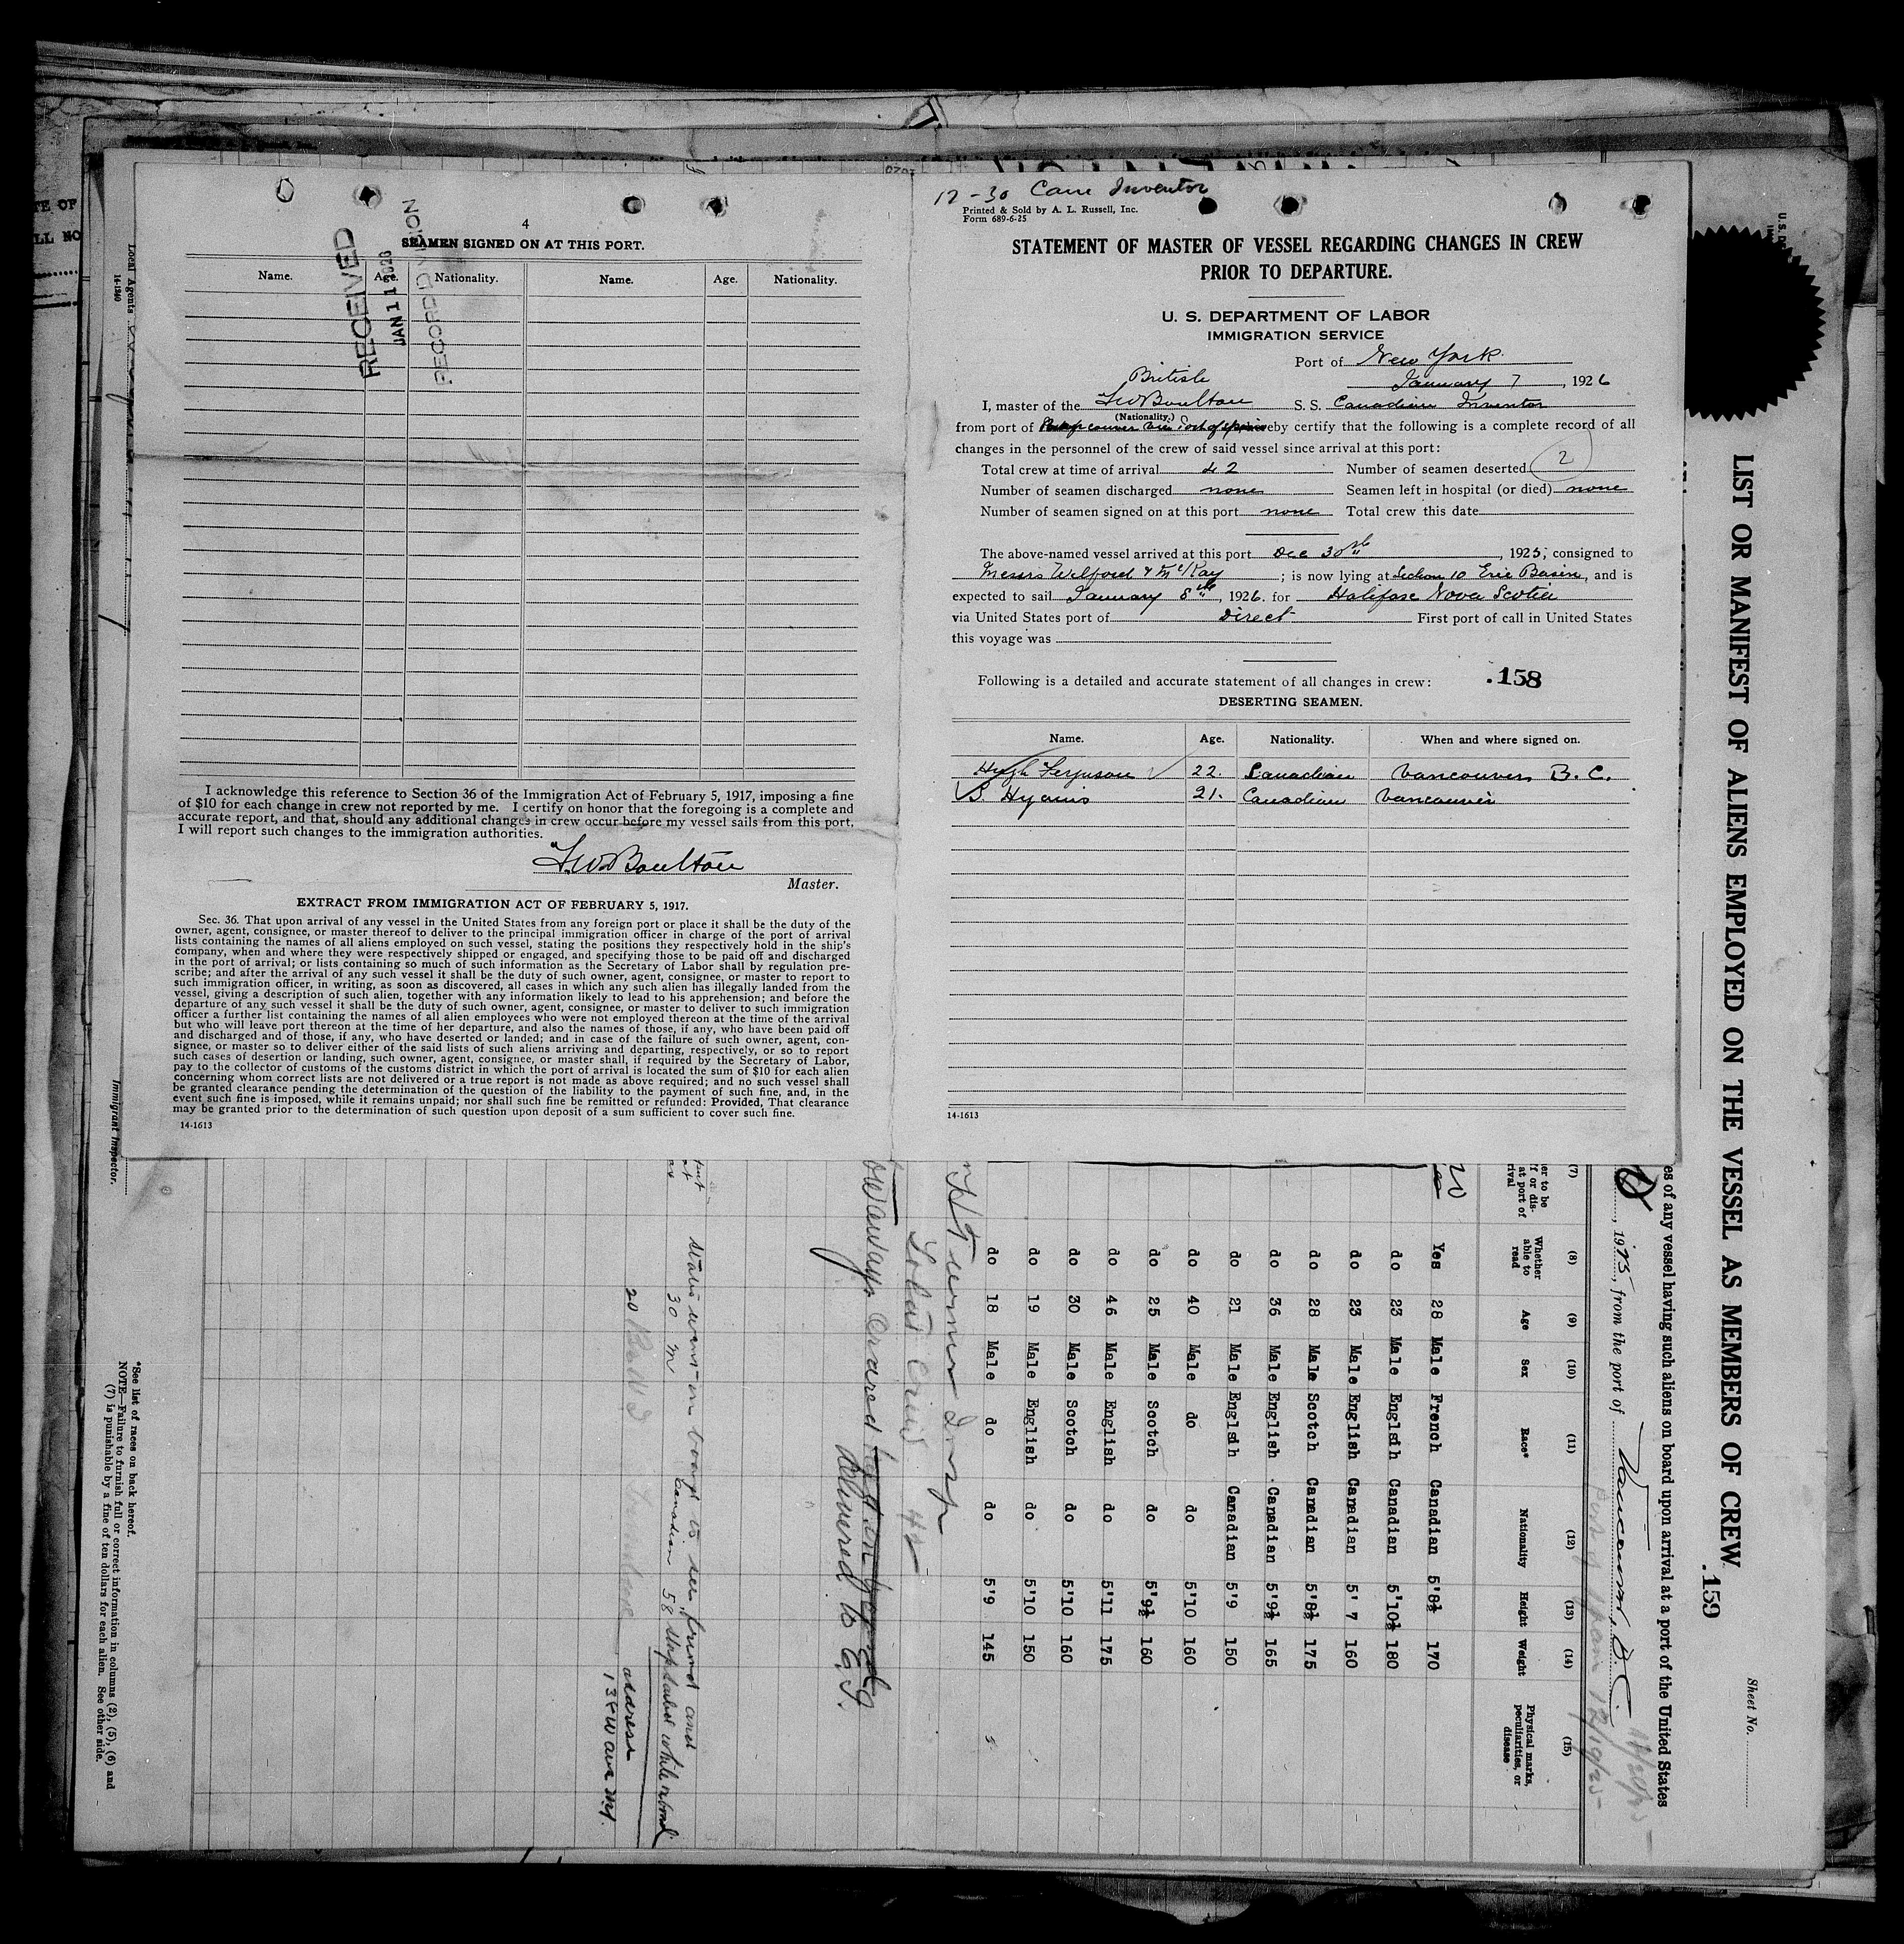 4
SEAMEN SIGNED ON AT THIS PORT.
RECEIVED
JAN 11 1926
RECORD DIVISION
Name. Age. Nationality. Name. Age. Nationality.
I acknowledge this reference to Section 36 of the Immigration Act of February 5, 1917, imposing a fine
of $10 for each change in crew not reported by me. I certify on honor that the foregoing is a complete and
accurate report, and that, should any additional changes in crew occur before my vessel sails from this port,
I will report such changes to the immigration authorities.
F.W. Boulton
Master.
EXTRACT FROM IMMIGRATION ACT OF FEBRUARY 5, 1917.
Sec. 36. That upon arrival of any vessel in the United States from any foreign port or place it shall be the duty of the
owner, agent, consignee, or master thereof to deliver to the principal immigration officer in charge of the port of arrival
lists containing the names of all aliens employed on such vessel, stating the positions they respectively hold in the ship's
company, when and where they were respectively shipped or engaged, and specifying those to be paid off and discharged
in the port of arrival; or lists containing so much of such information as the Secretary of Labor shall by regulation pre-
scribe; and after the arrival of any such vessel it shall be the duty of such owner, agent, consignee, or master to report to
such immigration officer, in writing, as soon as discovered, all cases in which any such alien has illegally landed from the
vessel, giving a description of such alien, together with any information likely to lead to his apprehension; and before the
departure of any such vessel it shall be the duty of such owner, agent, consignee, or master to deliver to such immigration
officer a further list containing the names of all alien employees who were not employed thereon at the time of the arrival
but who will leave port thereon at the time of her departure, and also the names of those, if any, who have been paid off
and discharged and of those, if any, who have deserted or landed; and in case of the failure of such owner, agent, con-
signee, or master so to deliver either of the said lists of such aliens arriving and departing, respectively, or so to report
such cases of desertion or landing, such owner, agent, consignee, or master shall, if required by the Secretary of Labor,
pay to the collector of customs of the customs district in which the port of arrival is located the sum of $10 for each alien
concerning whom correct lists are not delivered or a true report is not made as above required; and no such vessel shall
be granted clearance pending the determination of the question of the liability to the payment of such fine, and, in the
event such fine is imposed, while it remains unpaid; nor shall such fine be remitted or refunded: Provided, That clearance
may be granted prior to the determination of such question upon deposit of a sum sufficient to cover such fine.
14-1613
12-30 Can Inventor
Printed & Sold by A. L. Russell, Inc.
Form 689-6-25
STATEMENT OF MASTER OF VESSEL REGARDING CHANGES IN CREW
PRIOR TO DEPARTURE.
U. S. DEPARTMENT OF LABOR
IMMIGRATION SERVICE
Port of New York
British January 7, 1926
I, master of the F W Boulton S. S. Canadian Inventor
(Nationality.)
from port of hereby certify that the following is a complete record of all
changes in the personnel of the crew of said vessel since arrival at this port:
Total crew at time of arrival 42 Number of seamen deserted 2
Number of seamen discharged none Seamen left in hospital (or died) none
Number of seamen signed on at this port none Total crew this date
The above-named vessel arrived at this port Dec 30th, 1925, consigned to
Messrs Welford & McKay; is now lying at Section 10 Erie Basin, and is
expected to sail January 8th, 1926 for Halifax Nova Scotia
via United States port of Direct First port of call in United States
this voyage was
Following is a detailed and accurate statement of all changes in crew: .158
DESERTING SEAMEN.
Name. Age. Nationality. When and where signed on.
Hugh Ferguson 22. Canadian Vancouver B. C.
S. Hyams 21. Canadian Vancouver
14-1613
LIST OR MANIFEST OF ALIENS EMPLOYED ON THE VESSEL AS MEMBERS OF CREW
.159
Sheet No.
es of any vessel having such aliens on board upon arrival at a port of the United States
, 1925, from the port of Vancouver, B.C.
(7) (8) (9) (10) (11) (12) (13) (14) (15)
er to be
f or dis-
at port of
rival
Whether able to read Age Sex Race* Nationality Height Weight Physical marks, peculiarities, or disease
Yes 28 Male French Canadian 5'8½ 170
do 23 Male English Canadian 5'10½ 180
do 23 Male English Canadian 5'7 160
do 28 Male Scotch Canadian 5'8½ 175
do 36 Male English Canadian 5'9½ 165
do 21 Male English Canadian 5'9 150
do 40 Male do do 5'10 160
do 25 Male Scotch do 5'9½ 160
do 46 Male English do 5'11 175
do 30 Male Scotch do 5'10 160
do 19 Male English do 5'10 150
do 18 Male do do 5'9 145
Total Crew 42
30 M Canadian 58
address
*See list of races on back hereof.
NOTE—Failure to furnish full or correct information in columns (2), (5), (6) and
(7) is punishable by a fine of ten dollars for each alien. See other side.
Local Agents
14-1240
Immigrant Inspector.